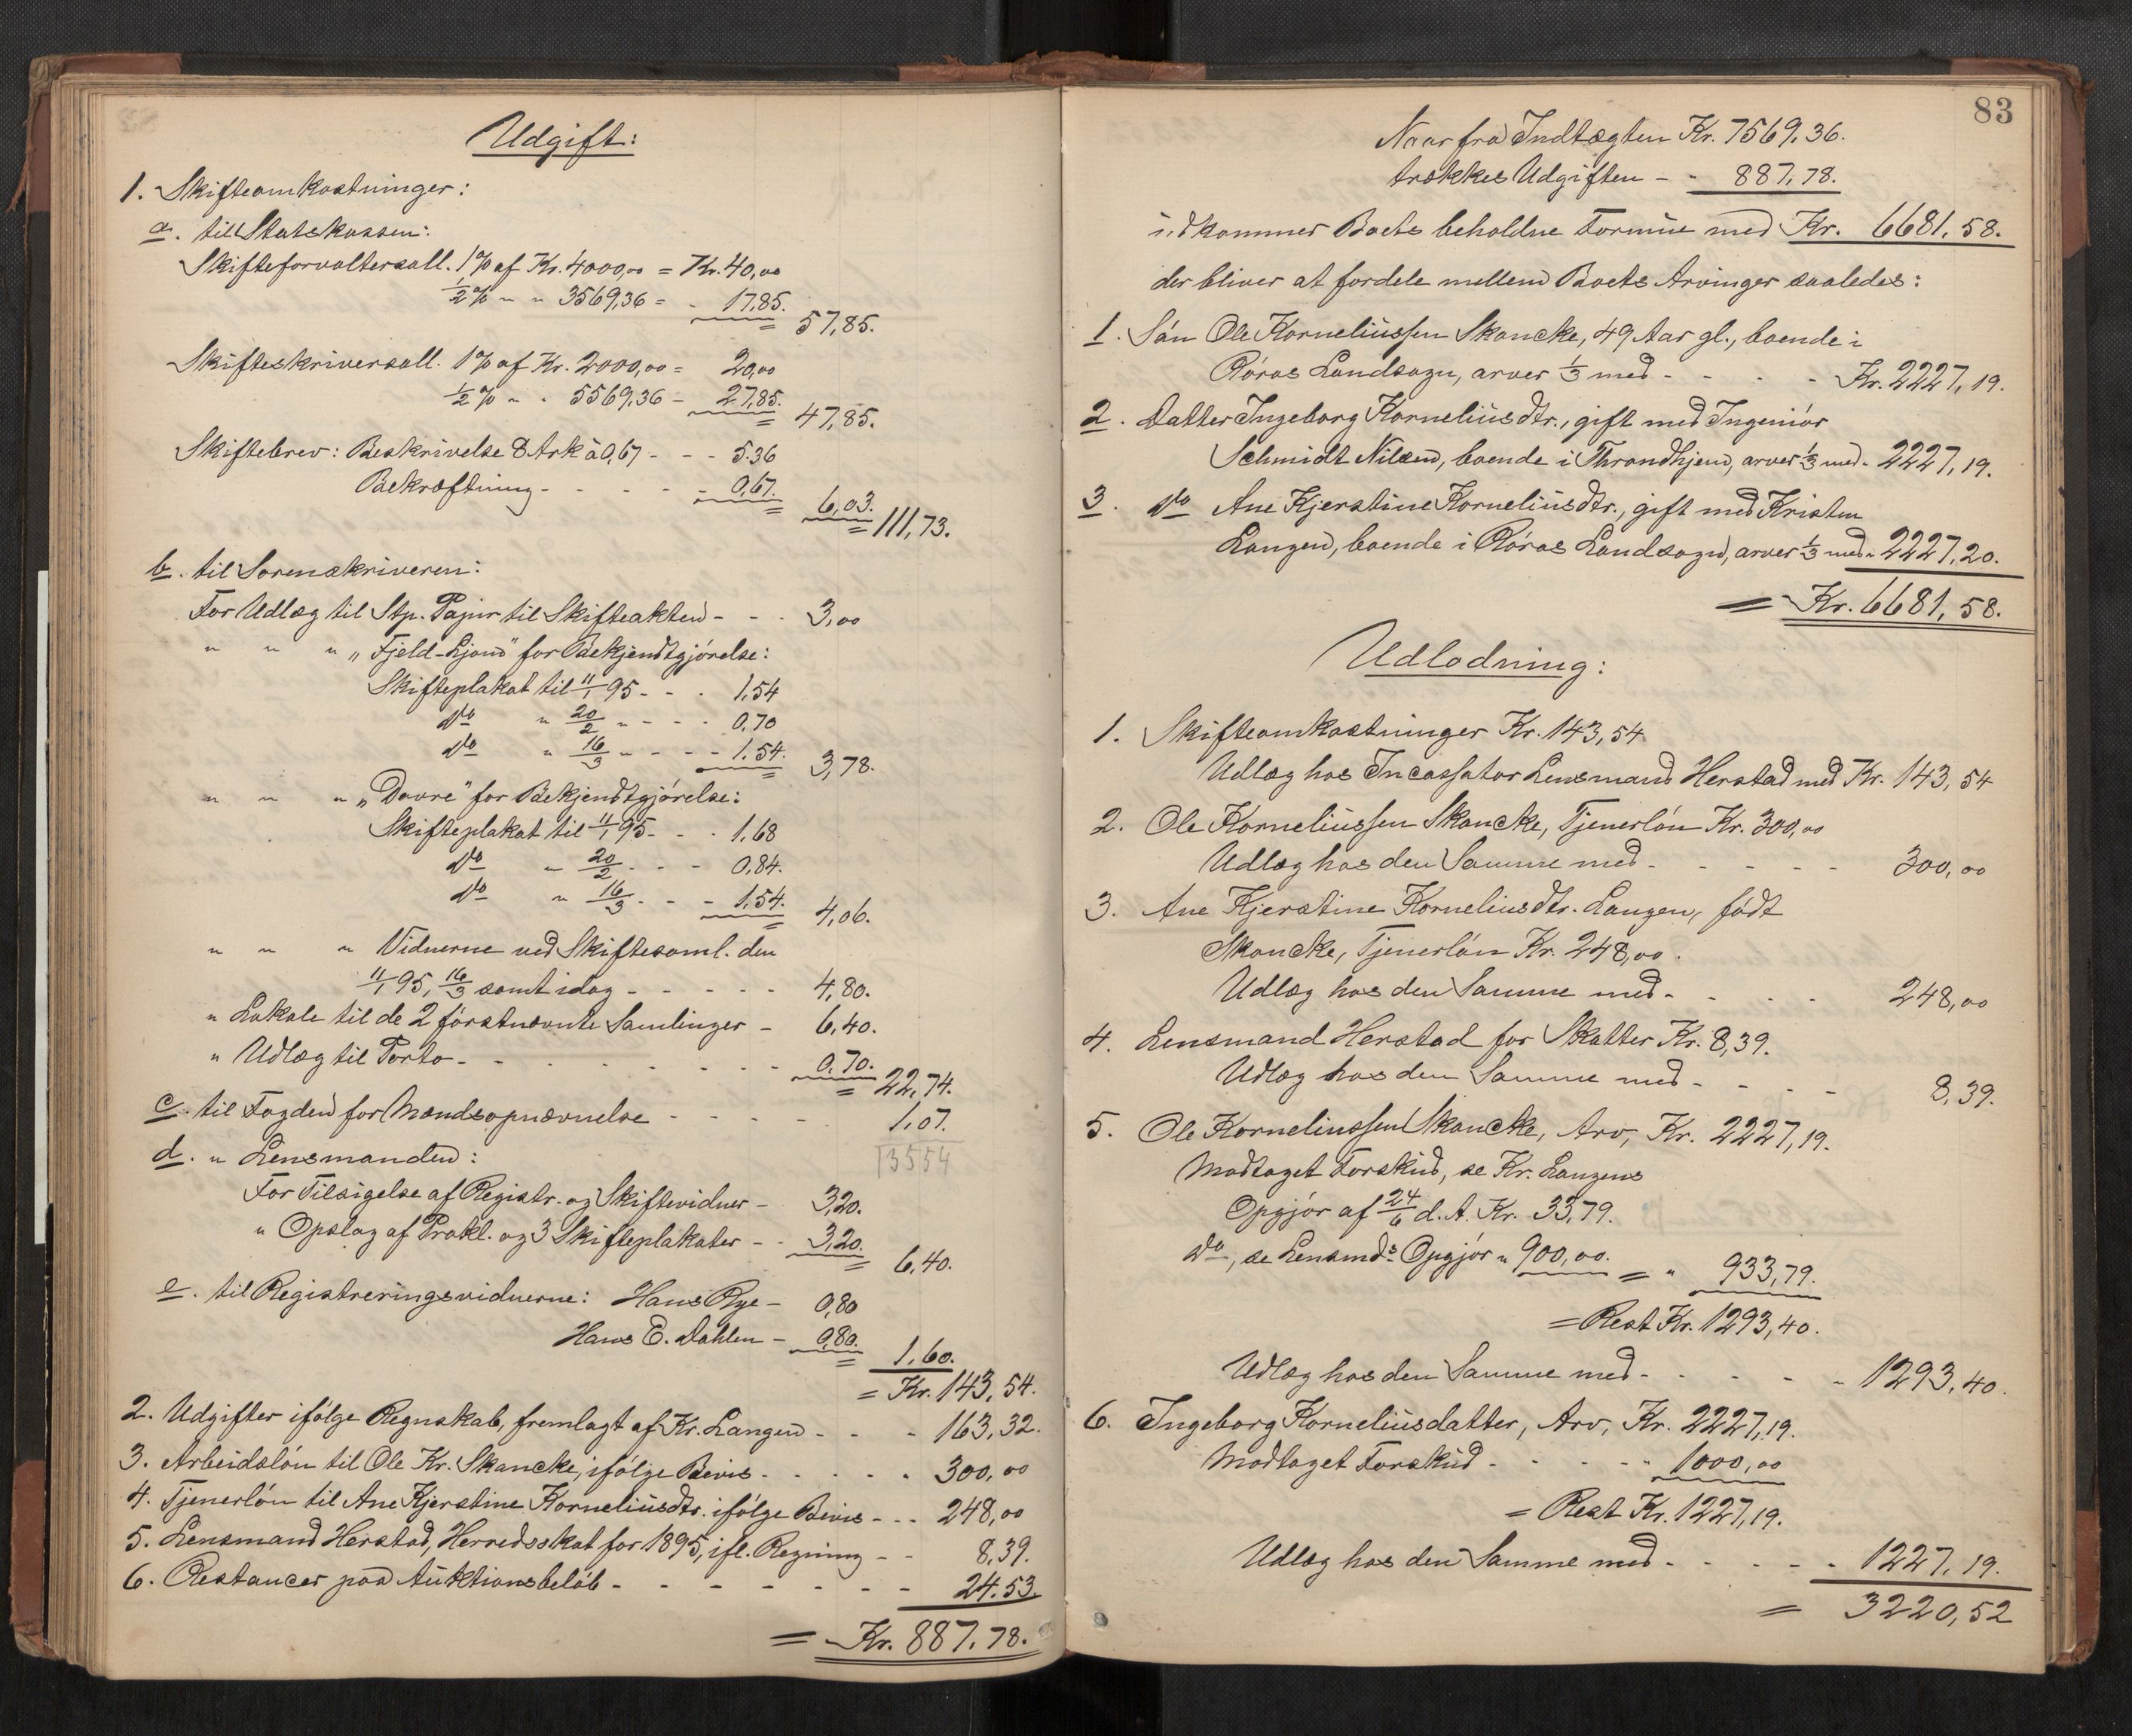 Udgift:
1. Skifteomkostninger:
a. til Statskassen:
Skifteforvaltersall. 1% af Kr. 4000,00 = Kr. 40,00
½% " " 3569,36 = - 17,85.
= 57,85.
Skifteskriversall. 1% af Kr. 2000,00 = 20,00
½% " " 5569,36 - 27,85.
= 47,85.
Skiftebrev: Beskrivelse 8 Ark à 0,67 - - - 5.36
Bekræftning - - - - - 0,67.
= 6,03.
= 111,73.
b. til Sorenskriveren:
For Udlæg til Stp. Papir til Skifteakten - - - 3,00
" " " „Fjeld-Ljom" for Bekjendtgjørelse:
Skifteplakat til 11/1 95 - - - 1,54
do " 20/2 " - - - 0,70
do " 16/3 " - - - 1,54.
= 3,78.
" " " „Dovre" for Bekjendtgjørelse:
Skifteplakat til 11/1 95 - - - 1,68
do " 20/2 - - - 0,84.
do " 16/3 - - - 1,54.
= 4,06.
" " " Vidnerne ved Skiftesaml. den
11/1 95, 16/3 samt idag - - - - - 4,80.
" Lokale til de 2 førstnævnte Samlinger - 6,40.
" Udlæg til Porto - - - - - - - 0,70.
= 22,74.
c. til Fogden for Mandsopnævnelse - - - - 1,07.
13554
d. " Lensmanden:
For Tilsigelse af Registr. og Skiftevidner - 3,20.
" Opslag af Prokl. og 3 Skifteplakater - - 3,20.
= 6,40.
e. til Registreringsvidnerne: Hans Rye - 0,80
Hans E. Dahlen - 0,80.
= 1,60.
= Kr. 143,54.
2. Udgifter ifølge Regnskab, fremlagt af Kr. Langen - - - 163,32.
3. Arbeidsløn til Ole Kr. Skancke, ifølge Bevis - - - - - 300,00
4. Tjenerløn til Ane Kjerstine Korneliusdtr. ifølge Bevis - - - 248,00
5. Lensmand Herstad, Herredsskat for 1895, ifl. Regning - - 8,39.
6. Restancer paa Auktionsbeløb - - - - - - - 24.53.
= Kr. 887,78.
83
Naar fra Indtægten Kr. 7569,36.
trækkes Udgiften - - 887,78.
udkommer Boets beholdne Formue med Kr. 6681,58.
der bliver at fordele mellem Boets Arvinger saaledes:
1. Søn Ole Korneliussen Skancke, 49 Aar gl., boende i
Røros Landsogn, arver ⅓ med - - - - Kr. 2227,19.
2. Datter Ingeborg Korneliusdtr., gift med Ingeniør
Schmidt Nilsen, boende i Throndhjem, arver ⅓ med - 2227,19.
3. do Ane Kjerstine Korneliusdtr., gift med Kristen
Langen, boende i Røros Landsogn, arver ⅓ med " 2227,20.
= Kr. 6681,58.
Udlodning:
1. Skifteomkostninger Kr. 143,54.
Udlæg hos Incassator Lensmand Herstad med Kr. 143,54
2. Ole Korneliussen Skancke, Tjenerløn Kr. 300,00
Udlæg hos den Samme med - - - - - 300,00
3. Ane Kjerstine Korneliusdtr. Langen, født
Skancke, Tjenerløn Kr. 248,00.
Udlæg hos den Samme med - - - - 248,00
4. Lensmand Herstad for Skatter Kr. 8,39.
Udlæg hos den Samme med - - - - 8,39.
5. Ole Korneliussen Skancke, Arv, Kr. 2227,19.
Modtaget Forskud, se Kr. Langens
Opgjør af 24/6 d. A. Kr. 33,79.
do, se Lensmds Opgjør " 900,00. = " 933,79.
= Rest Kr. 1293,40.
Udlæg hos den Samme med - - - - - 1293,40.
6. Ingeborg Korneliusdatter, Arv, Kr. 2227,19.
Modtaget Forskud - - - - - 1000,00
= Rest Kr. 1227,19.
Udlæg hos den Samme med - - - - - 1227,19.
= 3220,52